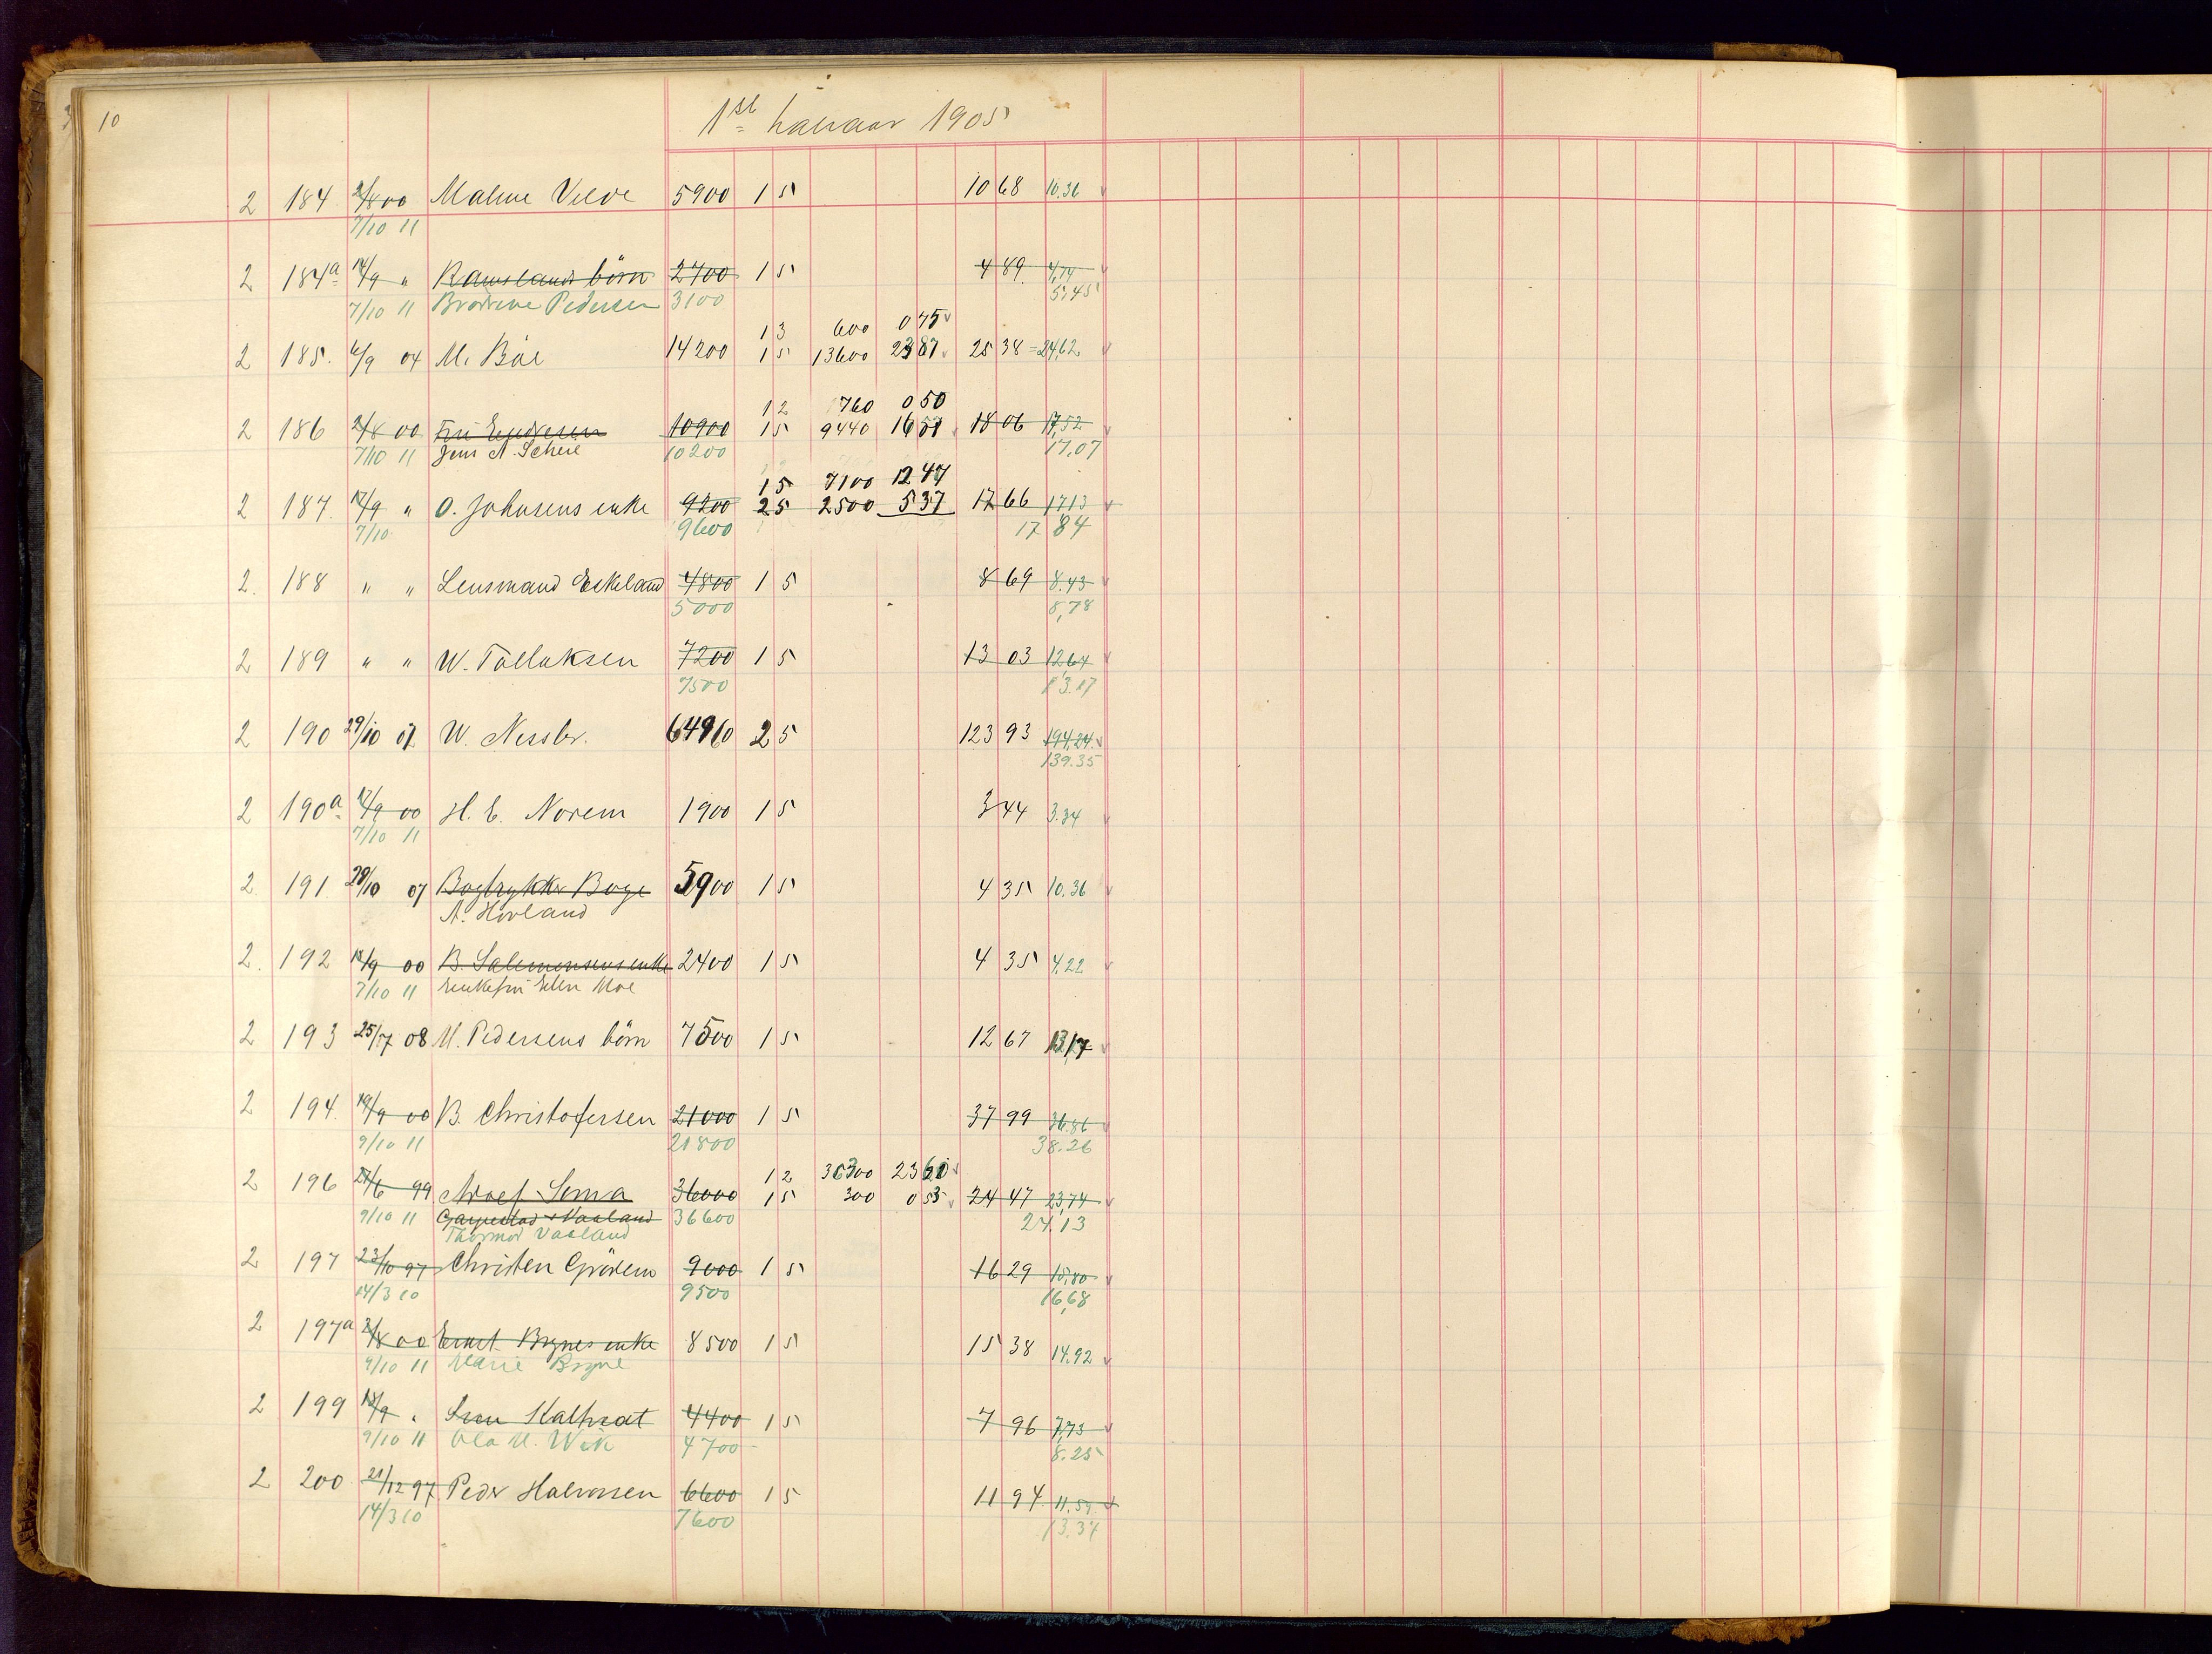 10
1st Januar 1905
2 184 2/8 00 Malene Velde 5900 1 5 10 68 10.36
7/10 11
2 184a 14/9 " Ramslands börn 2700 1 5 4 89 4,74
7/10 11 Brødrene Pedersen 3100 5,45
1 3 600 0 75
2 185. 6/9 04 M. Böe 14200 1 5 13600 23 87 25 38 = 24,62
1 2 760 0 50
2 186 2/8 00 10900 1 5 9440 16 57 18 06 17,52
7/10 11 Jens A. Scheie 10200 17,07
1 5 7100 12 47
2 187. 12/9 " O. Johnsens enke 9200 2 5 2500 5 37 17 66 17,13
7/10 9600 17 84
2. 188 " " Lensmand Eskeland 4800 1 5 8 69 8.43
5000 8,78
2 189 " " W. Tallaksen 7200 1 5 13 03 12,64
7500 13.17
2 190 29/10 07 W. Nessler. 64960 2 5 123 93 194,24
139.35
2 190a 12/9 00 H. E. Norem 1900 1 5 3 44 3.34
7/10 11
2 191 29/10 07 Bogtrykker Boye 5900 1 5 4 35 10.36
A. Hovland
2. 192 18/9 00 B. Salomonsens enke 2400 1 5 4 35 4,22
7/10 11 Enkefru Ellen Moe
2 193 25/7 08 M. Pedersens börn 7500 1 5 12 67 13,17
2 194. 19/9 00 B. Christofersen 21000 1 5 37 99 36.86
9/10 11 21800 38.26
1 2 36300 23 60
2 196 27/6 99 Adolf Soma 36000 1 5 300 0 53 24 47 23,74
9/10 11 Garpestad & Vaaland 36600 24.13
Thormod Vaaland
2 197 23/10 97 Christen Grödem 9000 1 5 16 29 15,80
14/3 10 9500 16,68
2 197a 2/8 00 Ernst Brynes enke 8500 1 5 15 38 14.92
9/10 11 Marie Bryne
2 199 18/9 " Sven Kalhvat 4400 1 5 7 96 7,73
9/10 11 Ola M. Wik 4700 8.25
2 200 21/12 97 Peder Halvorsen 6600 1 5 11 94 11.59
14/3 10 7600 13.34